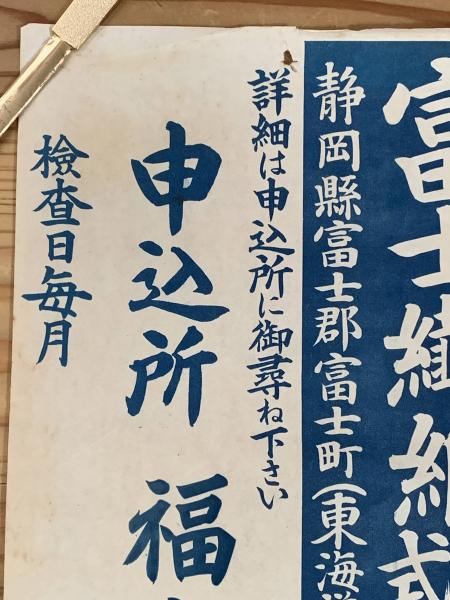 富士繊維
静岡縣富士郡富士町(東海
詳細は申込所に御尋ね下さい
申込所 福
檢査日毎月